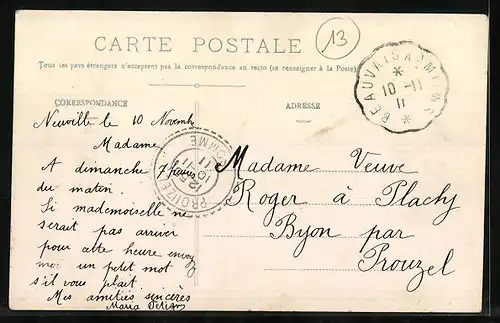 13
CARTE POSTALE
Tous les pays étrangers n'acceptent pas la correspondance au recto (se renseigner à la Poste)
CORRESPONDANCE
ADRESSE
BEAUVAIS A AMIENS
10 -11
11
PROUZEL
SOMME
10 -11
11
Neuville le 10 Novemb
Madame
A dimanche 7
du matin.
Si mademoiselle ne
serait pas arriver
pour cette heure envoy
moi un petit mot
s'il vous plait
Mes amitiés sincères
Maria
Madame Veuve
Roger à Plachy
Byon par
Prouzel